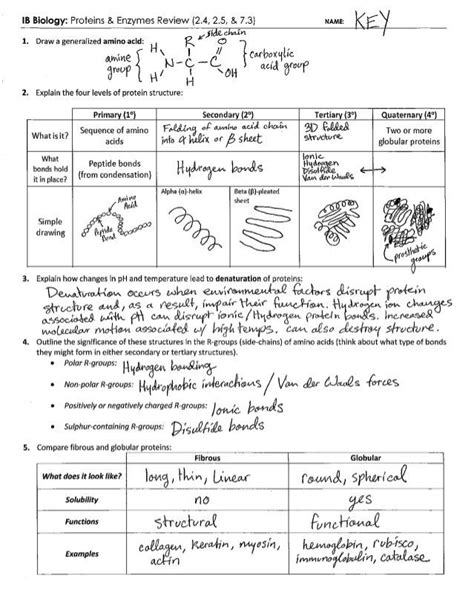 IB Biology: Proteins & Enzymes Review (2.4, 2.5, & 7.3)
NAME: KEY
1. Draw a generalized amino acid:
side chain
H R O
amine group
N-C-C
carboxylic acid group
H H OH
2. Explain the four levels of protein structure:
Primary (1°) Secondary (2°) Tertiary (3°) Quaternary (4°)
What is it?
Sequence of amino acids
Folding of amino acid chain into α helix or β sheet
3D folded structure
Two or more globular proteins
What bonds hold it in place?
Peptide bonds (from condensation)
Hydrogen bonds
Ionic
Hydrogen
Disulfide
Van der Waals
Simple drawing
Amino Acid
Peptide Bond
Alpha (α)-helix
Beta (β)-pleated sheet
prosthetic groups
3. Explain how changes in pH and temperature lead to denaturation of proteins:
Denaturation occurs when environmental factors disrupt protein
structure and, as a result, impair their function. Hydrogen ion changes
associated with pH can disrupt ionic/Hydrogen protein bonds. Increased
molecular motion associated w/ high temps. can also destroy structure.
4. Outline the significance of these structures in the R-groups (side-chains) of amino acids (think about what type of bonds
they might form in either secondary or tertiary structures).
• Polar R-groups: Hydrogen bonding
• Non-polar R-groups: Hydrophobic interactions / Van der Waals forces
• Positively or negatively charged R-groups: Ionic bonds
• Sulphur-containing R-groups: Disulfide bonds
5. Compare fibrous and globular proteins:
Fibrous Globular
What does it look like? long, thin, linear round, spherical
Solubility no yes
Functions structural functional
Examples
collagen, keratin, myosin, actin
hemoglobin, rubisco, immunoglobulin, catalase